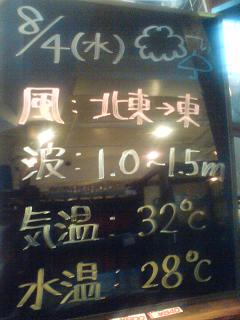 8/4(水)
風:北東→東
波:1.0~1.5m
気温:32℃
水温:28℃